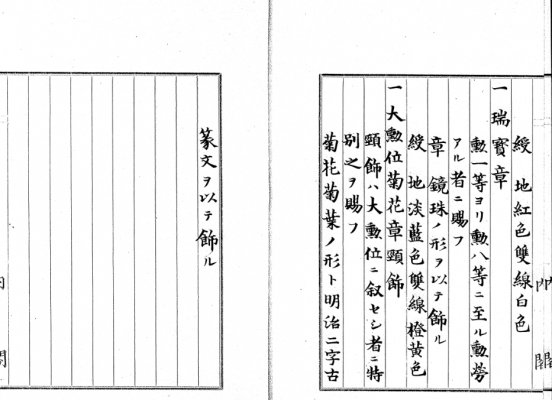 綬 地紅色雙線白色
一瑞寶章
勲一等ヨリ勲八等ニ至ル勲勞
アル者ニ賜フ
章 鏡珠ノ形ヲ以テ飾ル
綬 地淡藍色雙線橙黄色
一大勲位菊花章頸飾
頸飾ハ大勲位ニ叙セシ者ニ特
別之ヲ賜フ
菊花菊葉ノ形ト明治二字古
篆文ヲ以テ飾ル
内閣